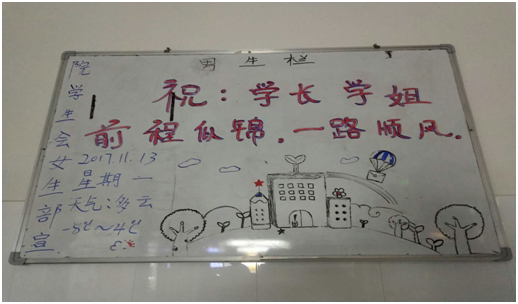 男生栏
祝：学长学姐
前程似锦.一路顺风.
院学生会女生部宣
2017.11.13
星期一
天气：多云
-8℃~4℃